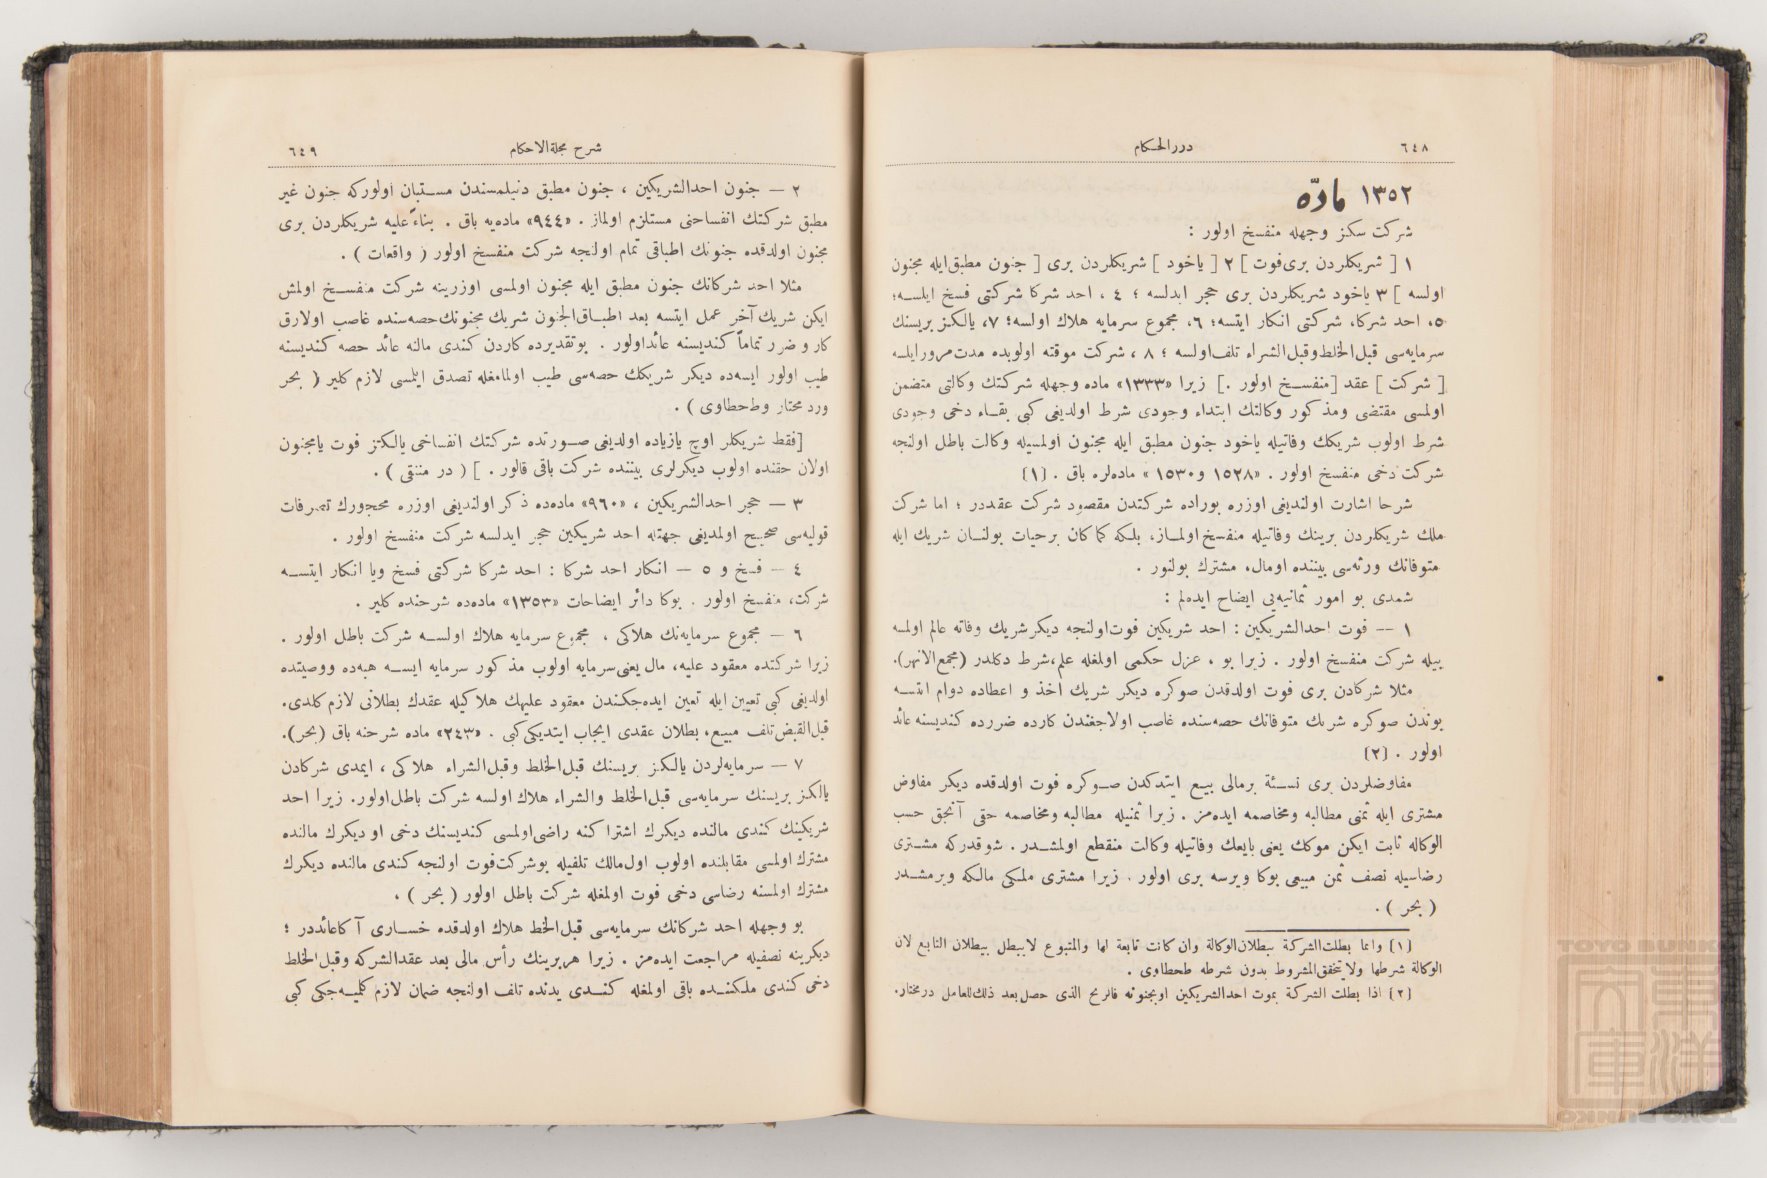 ٦٤٨
دررالحكام
١٣٥٢ مادّه
شركت سكز وجهله منفسخ اولور :
١ [ شريكلردن برى فوت ] ٢ [ ياخود ] شريكلردن برى [ جنون مطبق ايله مجنون
اولسه ] ٣ ياخود شريكلردن برى حجر ايدلسه ؛ ٤ ، احد شركا شركتى فسخ ايلسه؛
٥، احد شركا، شركتى انكار ايتسه؛ ٦، مجموع سرمايه هلاك اولسه؛ ٧، يالكز بريسنك
سرمايه‌سى قبل‌الخلط وقبل‌الشراء تلف اولسه ؛ ٨ ، شركت موقته اولوبده مدت مرور ايلسه
[ شركت ] عقد [منفسخ اولور .] زيرا «١٣٣٣» ماده وجهله شركتك وكالتى متضمن
اولمسى مقتضى ومذكور وكالتك ابتداء وجودى شرط اولديغى كبى بقاء دخى وجودى
شرط اولوب شريكك وفاتيله ياخود جنون مطبق ايله مجنون اولمسيله وكالت باطل اولنجه
شركت دخى منفسخ اولور . «١٥٢٨ و ١٥٣٠» ماده‌لره باق . (١)
شرحا اشارت اولنديغى اوزره بوراده شركتدن مقصود شركت عقددر ؛ اما شركت
ملك شريكلردن برينك وفاتيله منفسخ اولماز، بلكه كماكان برحيات بولنان شريك ايله
متوفانك ورثه‌سى بيننده اومال، مشترك بولنور .
شمدى بو امور ثمانيه‌يى ايضاح ايده‌لم :
١ — فوت احدالشريكين : احد شريكين فوت اولنجه ديكر شريك وفاته عالم اولمسه
بيله شركت منفسخ اولور . زيرا بو ، عزل حكمى اولمغله علم، شرط دكلدر (مجمع الانهر).
مثلا شركادن برى فوت اولدقدن صوكره ديكر شريك اخذ و اعطاده دوام ايتسه
بوندن صوكره شريك متوفانك حصه‌سنده غاصب اولاجغندن كارده ضررده كنديسنه عائد
اولور . (٢)
مفاوضلردن برى نسئة برمالى بيع ايتدكدن صوكره فوت اولدقده ديكر مفاوض
مشترى ايله ثمنى مطالبه ومخاصمه ايده‌مز . زيرا ثمنيله مطالبه ومخاصمه حقى آنجق حسب
الوكاله ثابت ايكن موكك يعنى بايعك وفاتيله وكالت منقطع اولمشدر . شوقدركه مشترى
رضاسيله نصف ثمن مبيعى بوكا ويرسه برى اولور . زيرا مشترى ملكى مالكه ويرمشدر
( بحر ) .
(١) وانما بطلت الشركة ببطلان الوكالة وان كانت تابعة لها والمتبوع لايبطل ببطلان التابع لان
الوكالة شرطها ولا يتحقق المشروط بدون شرطه طحطاوى .
(٢) اذا بطلت الشركة بموت احدالشريكين اوبجنونه فالربح الذى حصل بعد ذلك للعامل درمختار.
شرح مجلة الاحكام
٦٤٩
٢ — جنون احدالشريكين ، جنون مطبق دنيلمسندن مستبان اولوركه جنون غير
مطبق شركتك انفساخنى مستلزم اولماز . «٩٤٤» ماده‌يه باق . بناءً عليه شريكلردن برى
مجنون اولدقده جنونك اطباقى تمام اولنجه شركت منفسخ اولور ( واقعات ) .
مثلا احد شركانك جنون مطبق ايله مجنون اولمسى اوزرينه شركت منفسخ اولمش
ايكن شريك آخر عمل ايتسه بعد اطباق الجنون شريك مجنونك حصه‌سنده غاصب اولارق
كار و ضرر تماماً كنديسنه عائد اولور . بوتقديرده كاردن كندى مالنه عائد حصه كنديسنه
طيب اولور ايسه‌ده ديكر شريكك حصه‌سى طيب اولمامغله تصدق ايلمسى لازم كلير ( بحر
ورد محتار وطحطاوى ) .
[فقط شريكلر اوچ يا زياده اولديغى صورتده شركتك انفساخى يالكز فوت يا مجنون
اولان حقنده اولوب ديكرلرى بيننده شركت باقى قالور . ] ( در منتقى ) .
٣ — حجر احدالشريكين ، «٩٦٠» ماده‌ده ذكر اولنديغى اوزره محجورك تصرفات
قوليه‌سى صحيح اولمديغى جهتله احد شريكين حجر ايدلسه شركت منفسخ اولور .
٤ — فسخ و ٥ — انكار احد شركا : احد شركا شركتى فسخ ويا انكار ايتسه
شركت، منفسخ اولور . بوكا دائر ايضاحات «١٣٥٣» ماده‌ده شرحنده كلير .
٦ — مجموع سرمايه‌نك هلاكى ، مجموع سرمايه هلاك اولسه شركت باطل اولور .
زيرا شركتده معقود عليه، مال يعنى سرمايه اولوب مذكور سرمايه ايسه هبه‌ده ووصيتده
اولديغى كبى تعيين ايله تعين ايده‌جكندن معقود عليهك هلاكيله عقدك بطلانى لازم كلدى.
قبل القبض تلف مبيع، بطلان عقدى ايجاب ايتديكى كبى . «٢٤٣» ماده شرحنه باق (بحر).
٧ — سرمايه‌لردن يالكز بريسنك قبل‌الخلط وقبل‌الشراء هلاكى ، ايمدى شركادن
يالكز بريسنك سرمايه‌سى قبل‌الخلط والشراء هلاك اولسه شركت باطل اولور. زيرا احد
شريكينك كندى مالنده ديكرك اشتراكنه راضى اولمسى كنديسنك دخى او ديكرك مالنده
مشترك اولمسى مقابلنده اولوب اول مالك تلفيله بوشركت فوت اولنجه كندى مالنده ديكرك
مشترك اولمسنه رضاسى دخى فوت اولمغله شركت باطل اولور ( بحر ) .
بو وجهله احد شركانك سرمايه‌سى قبل‌الخلط هلاك اولدقده خسارى آكا عائددر ؛
ديكرينه نصفيله مراجعت ايده‌مز . زيرا هر برينك رأس مالى بعد عقدالشركه وقبل‌الخلط
دخى كندى ملكنده باقى اولمغله كندى يدنده تلف اولنجه ضمان لازم كلميه‌جكى كبى